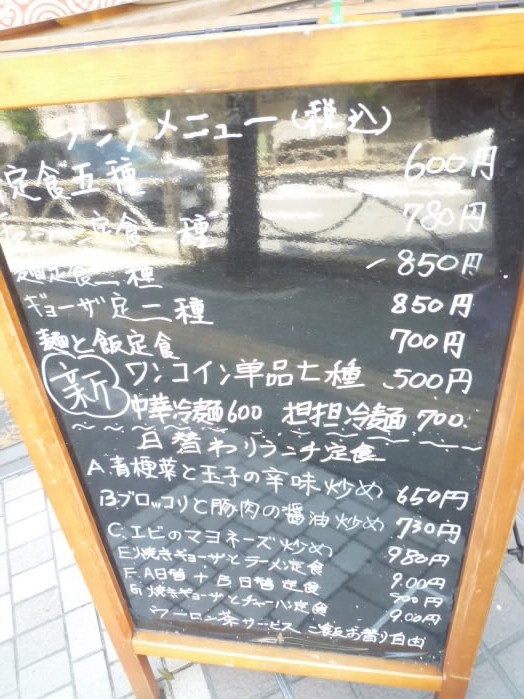 ランチメニュー(税込)
定食五種 600円
定食一種 780円
麺定食二種 850円
ギョーザ定二種 850円
麺と飯定食 700円
新 ワンコイン単品七種 500円
中華冷麺600 担担冷麺700.
日替わりランチ定食
A.青梗菜と玉子の辛味炒め 650円
B.ブロッコリと豚肉の醤油炒め 730円
C.エビのマヨネーズ炒め 980円
E.焼きギョーザとラーメン定食 900円
F.A日替+B日替定食 900円
G.焼きギョーザとチャーハン定食 900円
ウーロン茶サービス ご飯お替り自由